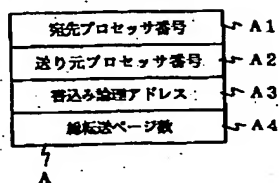 宛先プロセッサ番号 A1
送り元プロセッサ番号 A2
書込み論理アドレス A3
総転送ページ数 A4
A